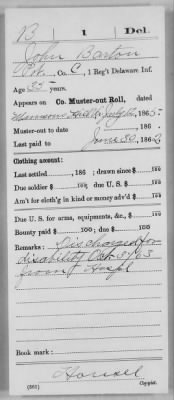 B | 1 | Del.
John Barton
Pvt., Co. C, 1 Reg't Delaware Inf.
Age 35 years.
Appears on Co. Muster-out Roll, dated
Munsons Hill Va July 12, 1865.
Muster-out to date , 186 .
Last paid to June 30, 1862
Clothing account:
Last settled , 186 ; drawn since $ 100
Due soldier $ 100; due U. S. $ 100
Am't for cloth'g in kind or money adv'd $ 100
Due U. S. for arms, equipments, &c., $ 100
Bounty paid $ 100; due $ 100
Remarks: Discharged for
disability Oct 3/63
from Hospl
Book mark:
(861) Copyist.